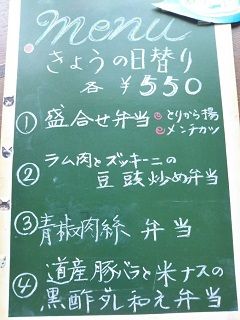 menu
きょうの日替り
各 ¥550
① 盛合せ弁当 とりから揚
メンチカツ
② ラム肉とズッキーニの
豆豉炒め弁当
③ 青椒肉絲 弁当
④ 道産豚バラと米ナスの
黒酢乳和え弁当